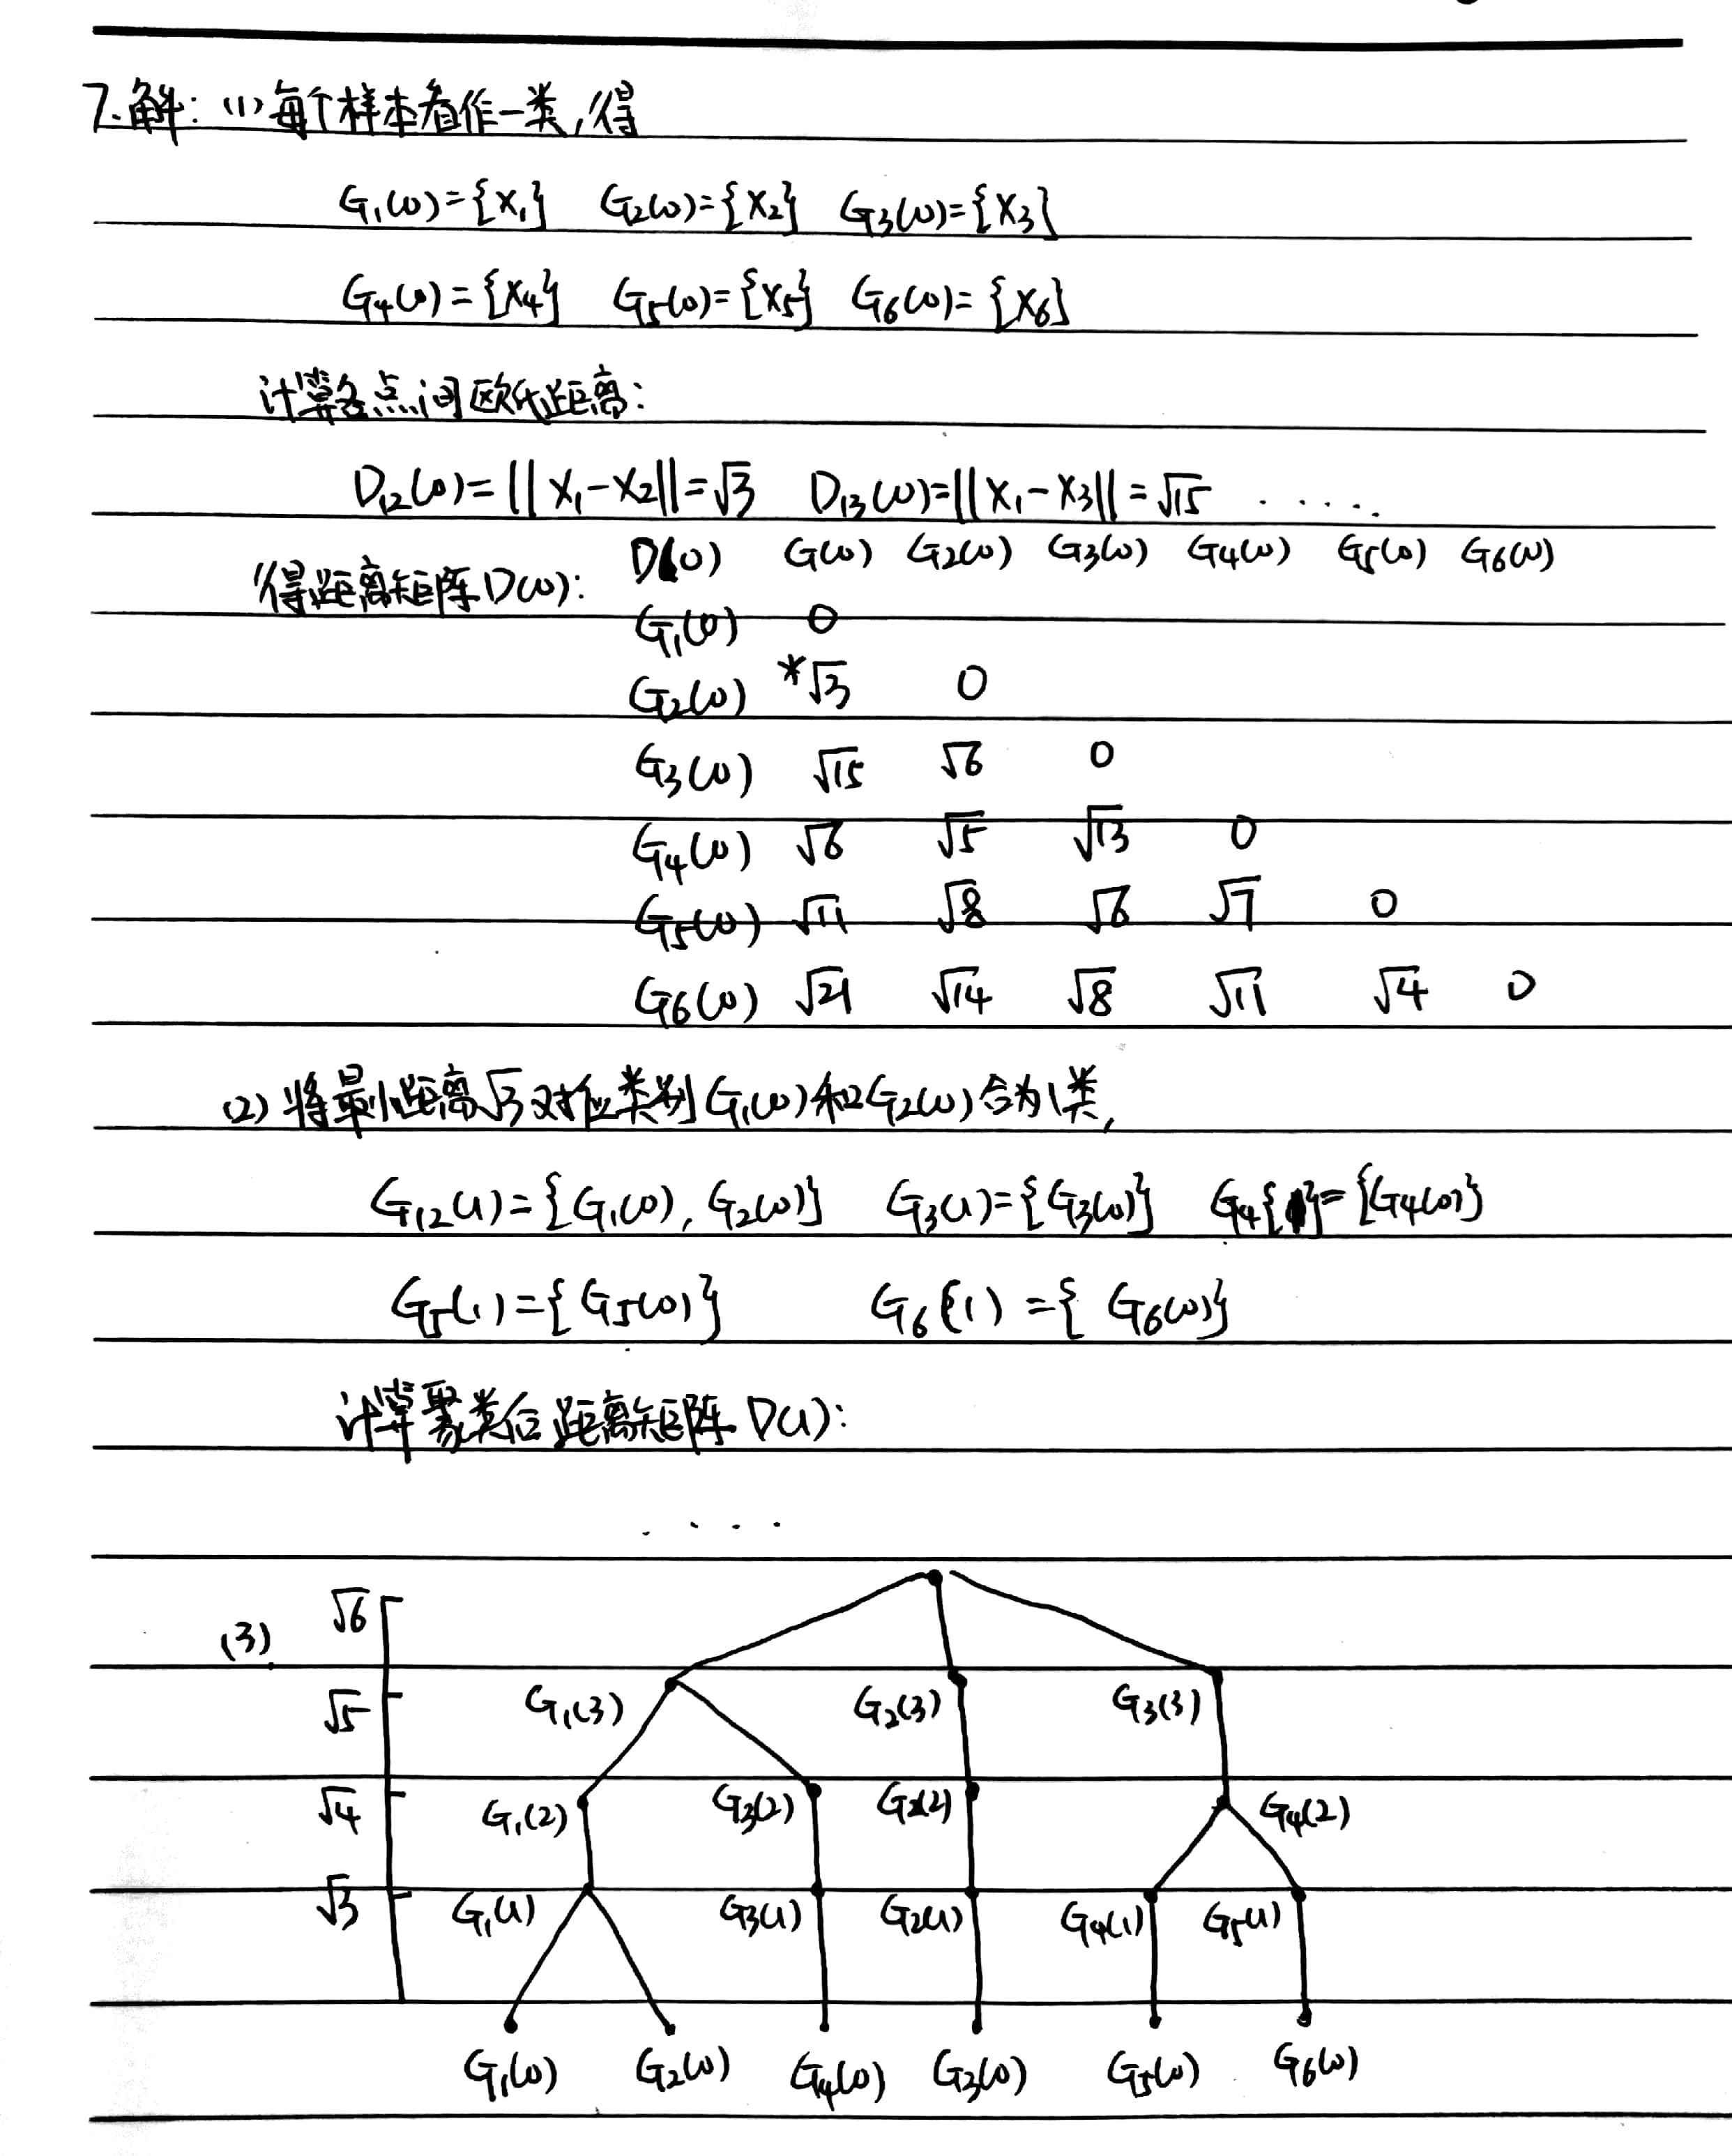 7.解：(1)每个样本看作一类，得
G₁(0)={X₁} G₂(0)={X₂} G₃(0)={X₃}
G₄(0)={X₄} G₅(0)={X₅} G₆(0)={X₆}
计算各点间欧氏距离：
D₁₂(0)=||X₁-X₂||=√3 D₁₃(0)=||X₁-X₃||=√15 ·····
得距离矩阵D(0)： D(0) G(0) G₂(0) G₃(0) G₄(0) G₅(0) G₆(0)
G₁(0) 0
G₂(0) *√3 0
G₃(0) √15 √6 0
G₄(0) √6 √5 √13 0
G₅(0) √11 √8 √6 √7 0
G₆(0) √21 √14 √8 √11 √4 0
(2)将最小距离√3对应类别G₁(0)和G₂(0)合为1类，
G₁₂(1)={G₁(0), G₂(0)} G₃(1)={G₃(0)} G₄{1}={G₄(0)}
G₅(1)={G₅(0)} G₆(1)={G₆(0)}
计算聚类后距离矩阵D(1)：
····
(3) √6
√5 G₁(3) G₂(3) G₃(3)
√4 G₁(2) G₃(2) G₂(2) G₄(2)
√3 G₁(1) G₃(1) G₂(1) G₄(1) G₅(1)
G₁(0) G₂(0) G₄(0) G₃(0) G₅(0) G₆(0)